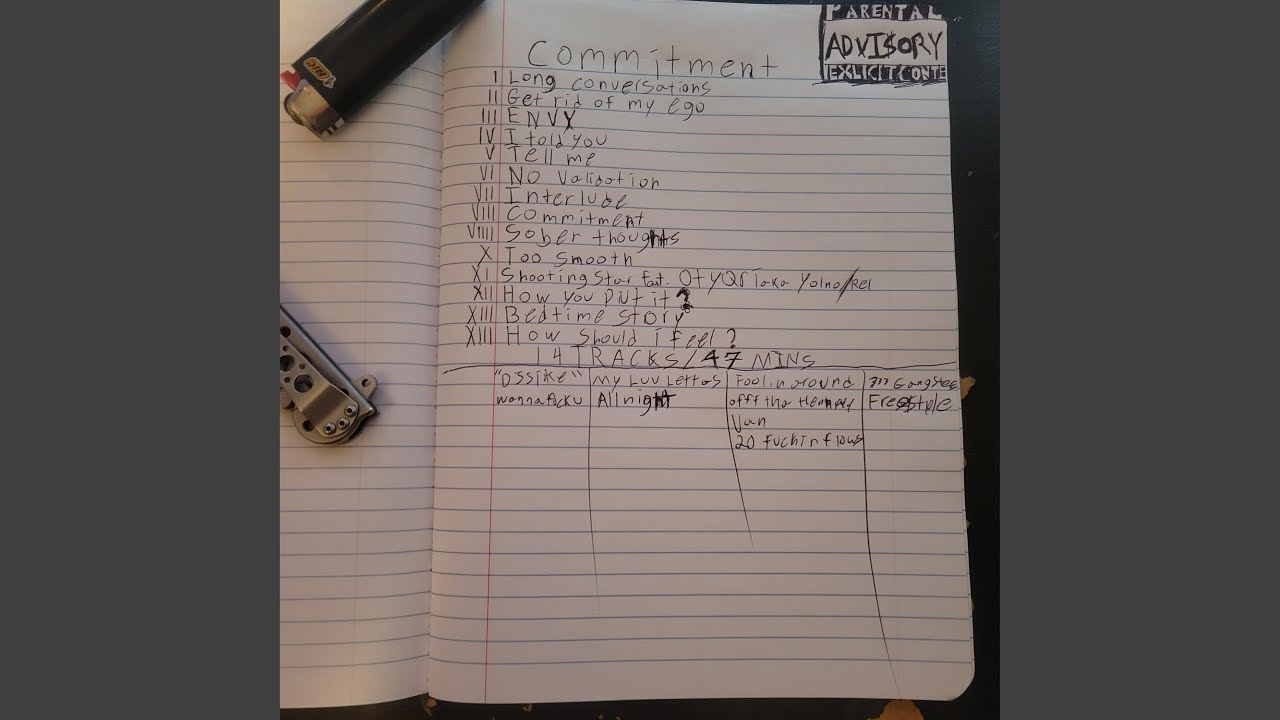 PARENTAL
ADVI$ORY
EXLICIT CONTE
BIC
Commitment
I Long conversations
II Get rid of my ego
III ENVY
IV I told you
V Tell me
VI NO Validation
VII Interlude
VIII Commitment
VIIII Sober thoughts
X Too smooth
XI Shooting Star feat.
XII How you put it ?
XIII Bedtime story
XIII How should i feel ?
14 TRACKS/47 MINS
My Luv Letters
All night
Foolin around
offf tha
Van
20 fuckin flows
Gangster
Freestyle